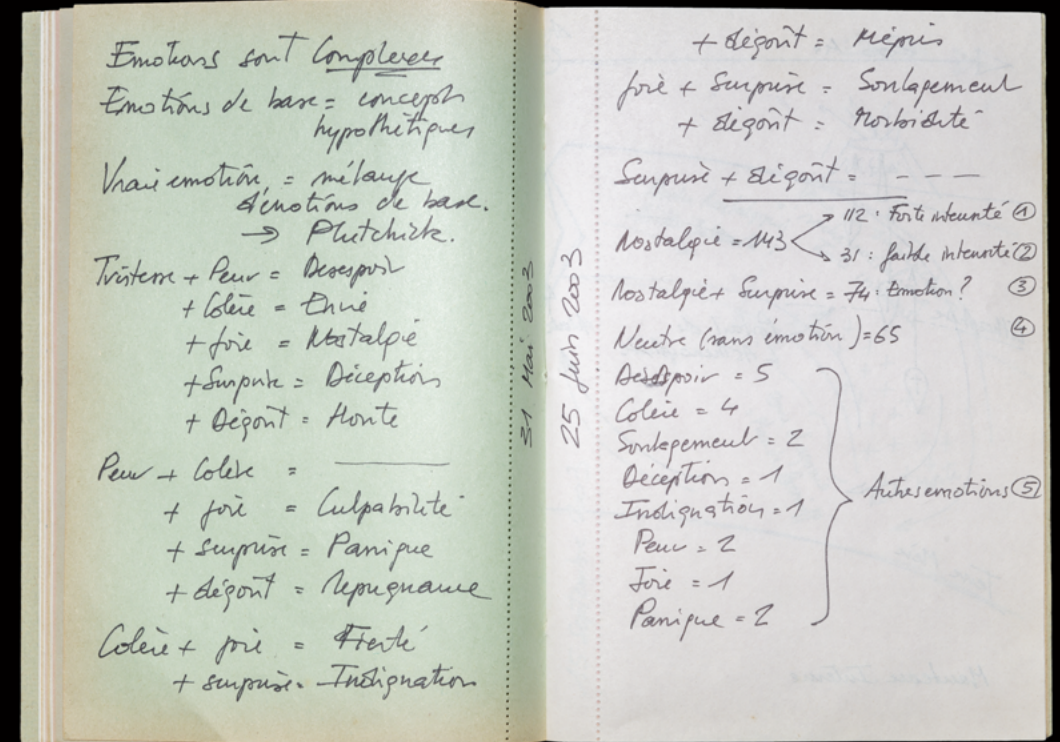 Emotions sont Complexes
Emotions de base = concepts
hypothétiques
Vraie emotion, = mélange
d'émotions de base.
→ Plutchick.
Tristesse + Peur = Desespoir
+ Colère = Envie
+ joie = Nostalgie
+ Surprise = Déception
+ Dégoût = Honte
Peur + Colère = ______
+ joie = Culpabilité
+ surprise = Panique
+ dégoût = Repugnance
Colère + joie = Fierté
+ surprise = Indignation
31 Mai 2003
25 Juin 2003
+ dégoût = Mépris
Joie + Surprise = Soulagement
+ dégoût = Morbidité
Surprise + dégoût = - - -
Nostalgie = 143
112 : Forte intensité ①
31 : faible intensité ②
Nostalgie + Surprise = 74 : Emotion ? ③
Neutre (sans émotion) = 65 ④
Desespoir = 5
Colère = 4
Soulagement = 2
Déception = 1
Indignation = 1
Peur = 2
Joie = 1
Panique = 2
Autres emotions ⑤